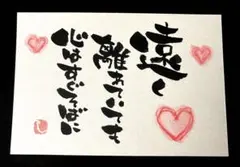 遠く
離れていても
心はすぐそばに